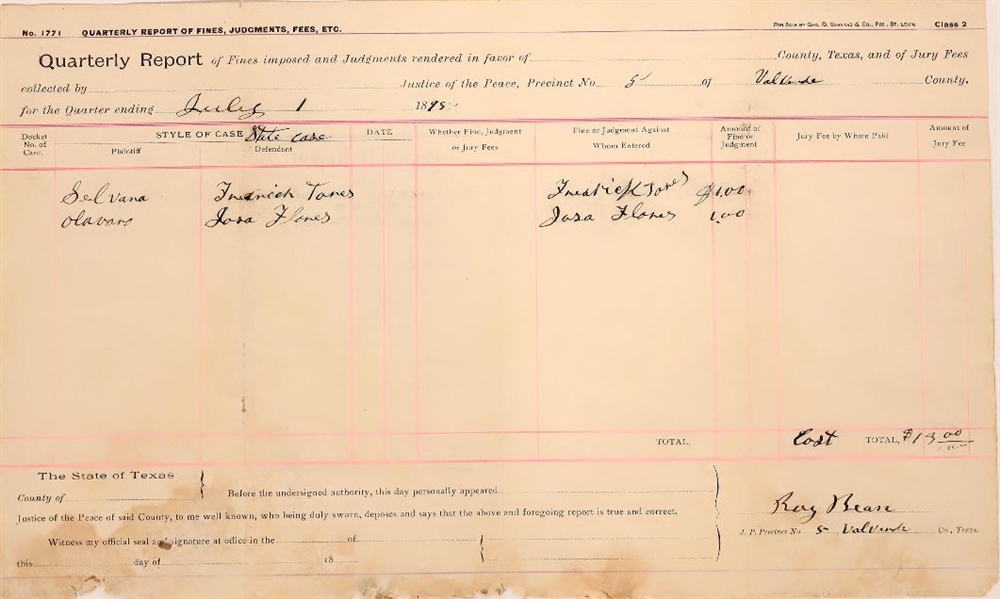 No. 1771 QUARTERLY REPORT OF FINES, JUDGMENTS, FEES, ETC. FOR SALE BY GEO. D. BARNARD & CO., PRS. ST. LOUIS Class 2
Quarterly Report of Fines imposed and Judgments rendered in favor of County, Texas, and of Jury Fees
collected by Justice of the Peace, Precinct No. 5 of Valverde County,
for the Quarter ending July 1 1895
Docket No. of Case. STYLE OF CASE State case DATE Whether Fine, Judgment or Jury Fees Fine or Judgment Against Whom Entered Amount of Fine or Judgment Jury Fee by Whom Paid Amount of Jury Fee
Plaintiff Defendant
Selvana Fredrick Tones Fredrick Tones $1.00
Olavaro Josa Flones Josa Flones 1.00
TOTAL, Cost TOTAL, $13.00
The State of Texas
County of Before the undersigned authority, this day personally appeared
Justice of the Peace of said County, to me well known, who being duly sworn, deposes and says that the above and foregoing report is true and correct.
Roy Bean
Witness my official seal and signature at office in the of J. P. Precinct No. 5 Valverde Co., Texas.
this day of 18